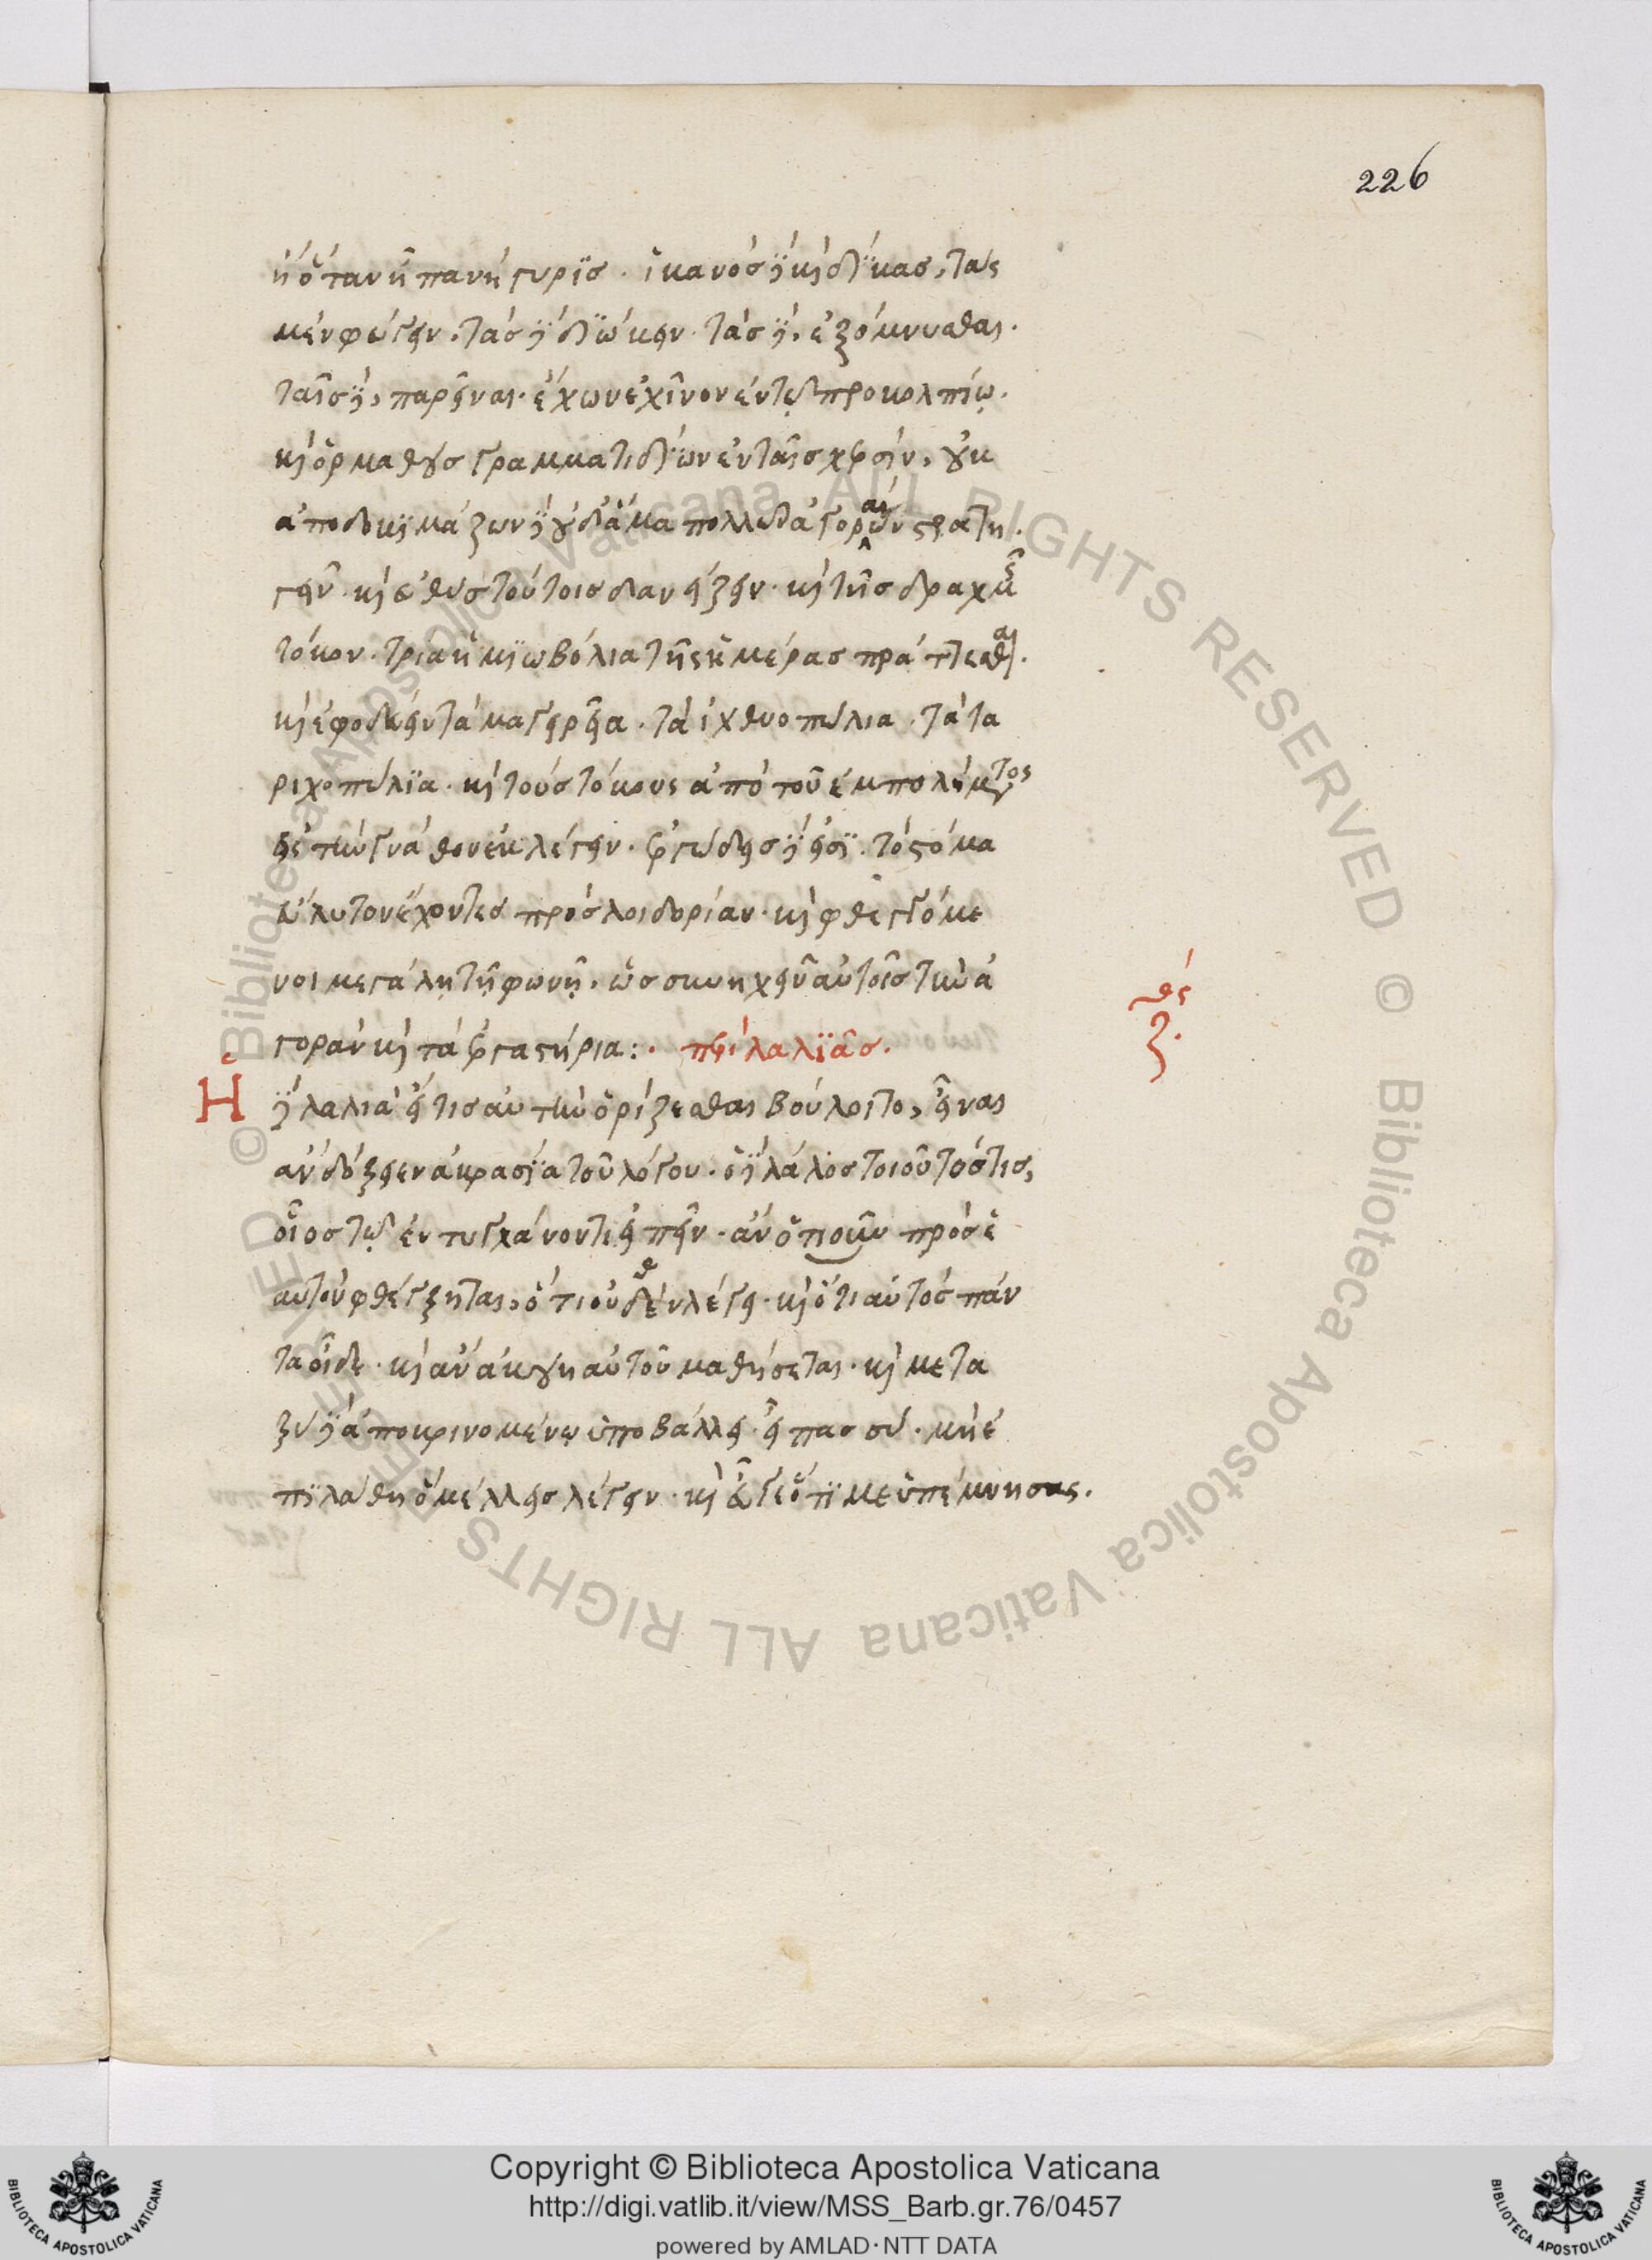 226
ἢ ὅταν ἦ πανήγυρϊσ · ἱκανὸσ δὲ καὶ δίκασ, τὰς
μὲν φεύγειν, τὰσ δὲ διώκειν · τὰσ δὲ, ἐξόμνυσθαι ·
ταῖσ δὲ, παρεῖναι · ἔχων ἐχῖνον ἐν τῷ προκολπίῳ ·
καὶ ὁρμαθοὺσ γραμματιδίων ἐν ταῖσ χερσὶν, οὐκ
ἀποδοκιμάζων δὲ οὐδ' ἅμα πολλῶν ἀγοραίων στρατη
γεῖν · καὶ εὐθὺσ τούτοισ δανείζειν · καὶ τῆσ δραχμῆς
τόκον · τρία ἡμιωβόλια τῆς ἡμέρασ πράττεσθαι ·
καὶ ἐφοδεύειν τὰ μαγειρεῖα · τὰ ἰχθυοπώλια · τὰ τα
ριχοπώλϊα · καὶ τοὺσ τόκους ἀπὸ τοῦ ἐμπολήματος
εἰσ τὴν γνάθον ἐκλέγειν · ἐργώδεισ δέ εἰσϊ · τὸ στόμα
εὔλυτον ἔχοντεσ πρὸσ λοιδορίαν · καὶ φθεγγόμε
νοι μεγάλῃ τῇ φωνῇ, ὡσ συνηχεῖν αὐτοῖσ τὴν ἀ
γορὰν καὶ τὰ ἐργαστήρια :· περὶ λαλϊᾶσ.
Ἡ δὲ λαλιὰ εἴ τισ αὐτὴν ὁρίζεσθαι βούλοιτο, εἶναι
ἂν δόξειεν ἀκρασία τοῦ λόγου · ὁ δὲ λάλοσ τοιοῦτόσ τισ,
οἷοσ τῷ ἐντυγχάνοντι εἰπεῖν · ἂν ὁτιοῦν πρὸσ ἑ
αυτὸν φθέγξηται, ὅτι οὐθὲν λέγει · καὶ ὅτι αὐτὸσ πάν
τα οἶδε · καὶ ἂν ἀκούῃ αὐτοῦ μαθήσεται · καὶ μετα
ξὺ δὲ ἀποκρινομένῳ ὑποβάλλει · εἶπασ σύ · μὴ ἐ
πϊλάθῃ ὃ μέλλεισ λέγειν · καὶ εὖ γε ὅτι με ὑπέμνησας.
Copyright © Biblioteca Apostolica Vaticana
http://digi.vatlib.it/view/MSS_Barb.gr.76/0457
powered by AMLAD·NTT DATA
BIBLIOTECA APOSTOLICA VATICANA
BIBLIOTECA APOSTOLICA VATICANA
© Biblioteca Apostolica Vaticana ALL RIGHTS RESERVED © Biblioteca Apostolica Vaticana ALL RIGHTS RESERVED